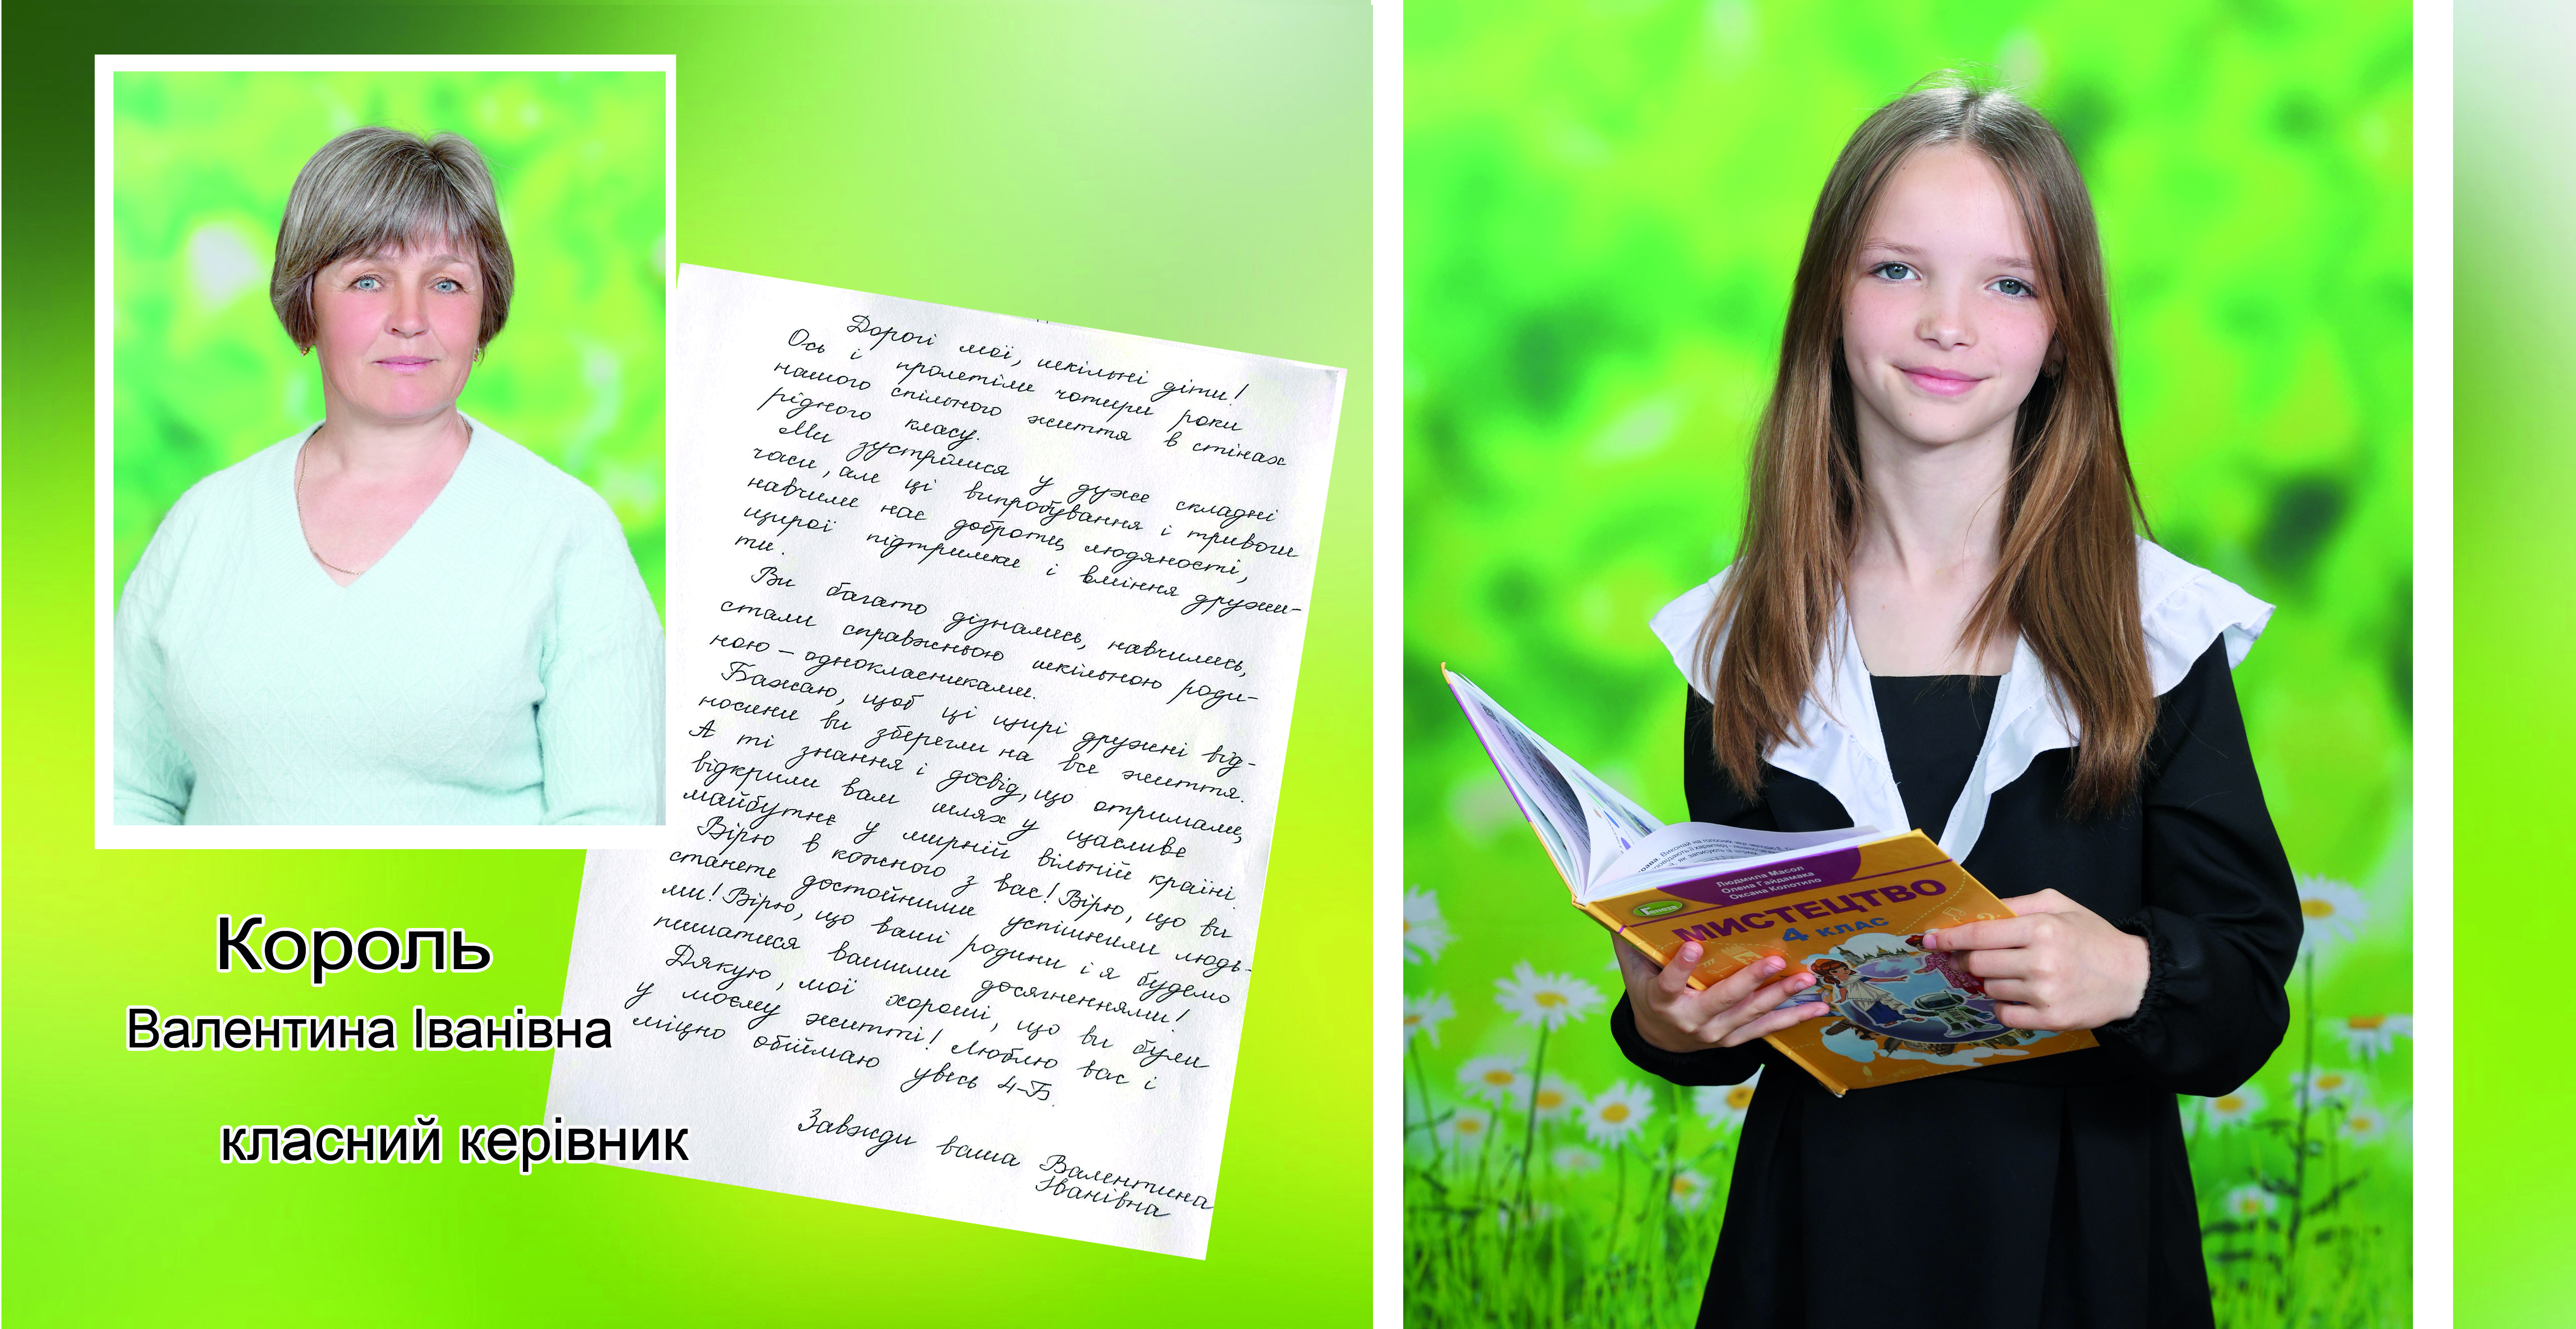 Дорогі мої, шкільні діти!
Ось і пролетіли чотири роки
нашого спільного життя в стінах
рідного класу.
Ми зустрілися у дуже складні
часи, але ці випробування і тривоги
навчили нас доброти, людяності,
щирої підтримки і вміння дружи-
ти.
Ви багато дізнались, навчились,
стали справжньою шкільною роди-
ною - однокласниками.
Бажаю, щоб ці щирі дружні від-
носини ви зберегли на все життя.
А ті знання і досвід, що отримали,
відкрили вам шлях у щасливе
майбутнє у мирній вільній країні.
Вірю в кожного з вас! Вірю, що ви
станете достойними успішними людь-
ми! Вірю, що ваші родини і я будемо
пишатися вашими досягненнями!
Дякую, мої хороші, що ви були
у моєму житті! Люблю вас і
міцно обіймаю увесь 4-Б.
Завжди ваша Валентина
Іванівна
Король
Валентина Іванівна
класний керівник
Людмила Масол
Олена Гайдамака
Оксана Колотило
Генеза
МИСТЕЦТВО
4 КЛАС